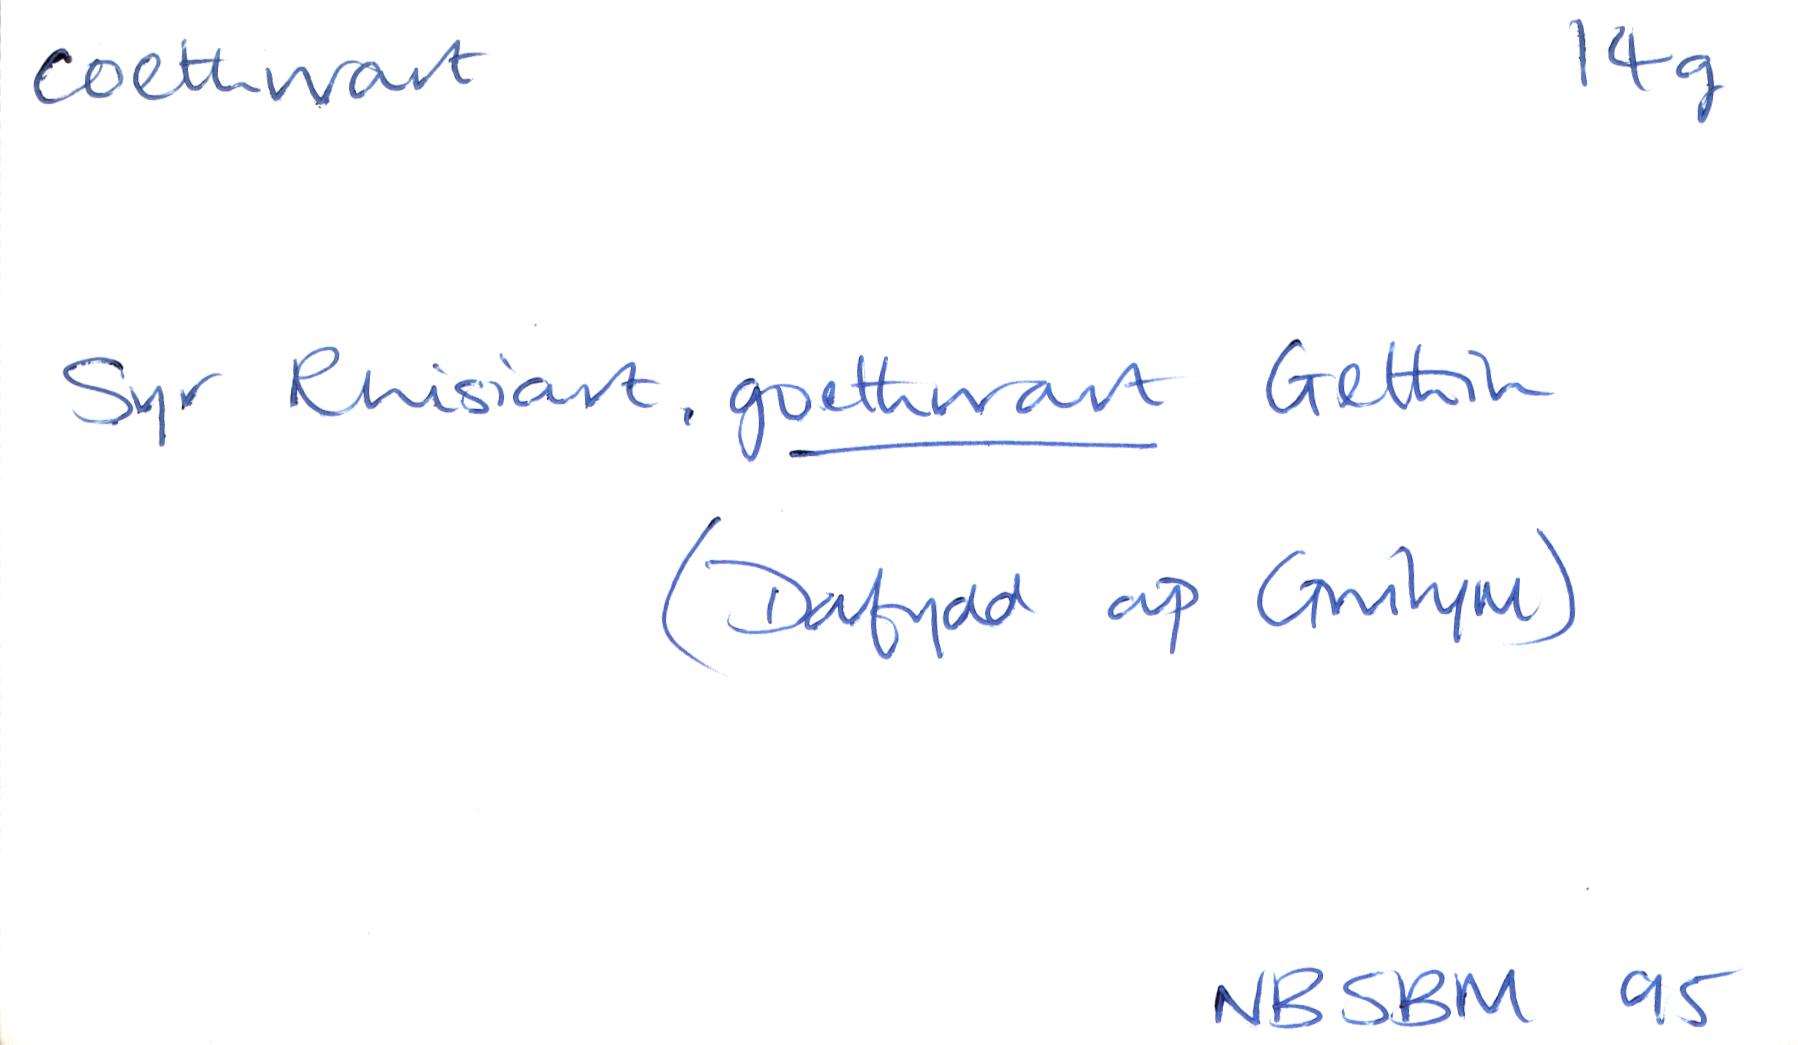 coethwart 14g
Syr Rhisiart, goethwart Gethin
(Dafydd ap Gwilym)
NBSBM 95